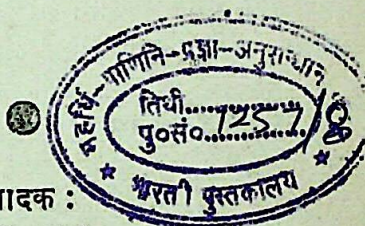 महर्षि-पाणिनि-प्रज्ञा-अनुसन्धान
तिथी..............
पु०सं०..............
★ भारती पुस्तकालय ★
ादक :